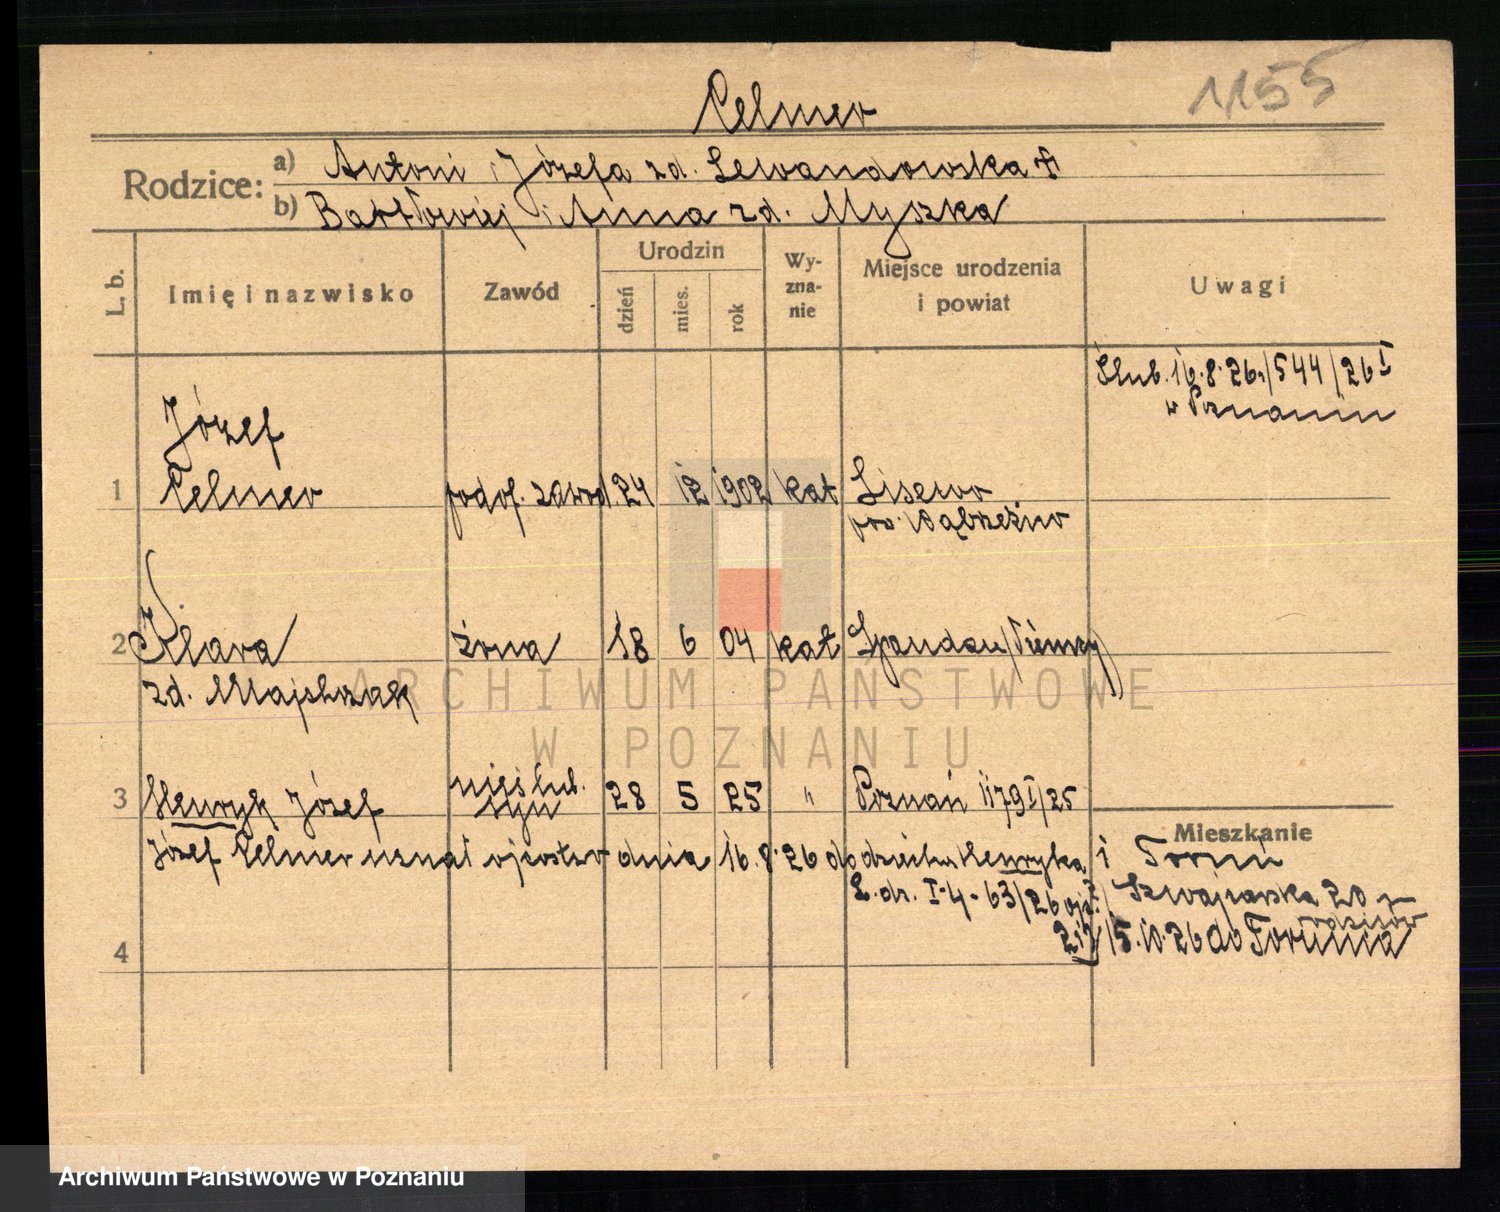 1155
Celmer
Rodzice:
a) Antoni i Józefa zd. Lewandowska
b) Bartłomiej i Anna zd. Myszka
L. b.
Imię i nazwisko
Zawód
Urodzin
dzień
mies.
rok
Wy-
zna-
nie
Miejsce urodzenia
i powiat
Uwagi
Ślub. 16.8.26./544/26 I
w Poznaniu
Józef
1 Celmer podof. zawod. 24 12 1902 kat Lisewo
pow. Wąbrzeźno
2 Klara żona 18 6 04 kat Spandau/Niemcy
zd. Majchrzak
3 Henryk Józef nieślub. 28 5 25 " Poznań 1179 I/25
syn
Józef Celmer uznał ojcostwo dnia 16.8.26 do dziecka Henryka i
L. dz. I-4-63/26
Mieszkanie
Toruń
Szwajcarska 20
rodziców
4
15.10.26 do Torunia
ARCHIWUM PAŃSTWOWE
W POZNANIU
Archiwum Państwowe w Poznaniu